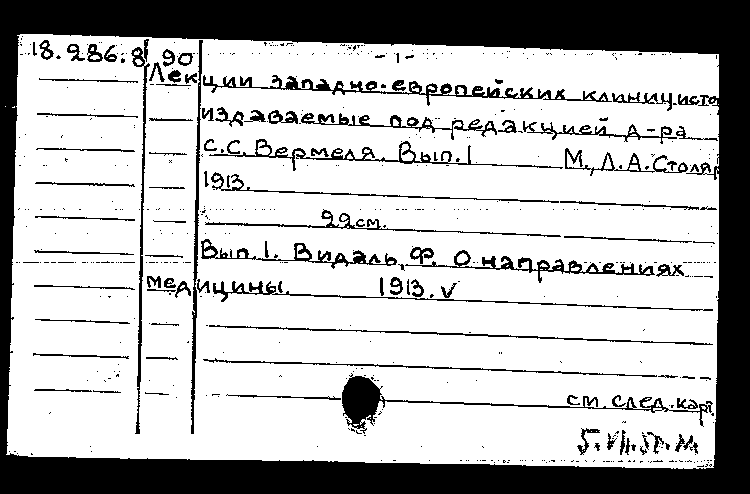 18.286.8 90 - 1 -
Лекции западно-европейских клиницистов
издаваемые под редакцией д-ра
С.С. Вермеля. Вып. 1 М., Л.А. Столяр
1913.
22см.
Вып. 1. Видаль, Ф. О направлениях
медицины. 1913. V
см. след. карт.